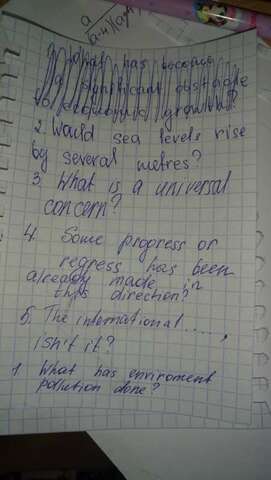 1. What has become
a significant obstacle
to economic growth?
2. Would sea levels rise
by several metres?
3. What is a universal
concern?
4. Some progress or
regress has been
already made in
this direction?
5. The international ......,
isn't it?
1. What has enviroment
pollution done?